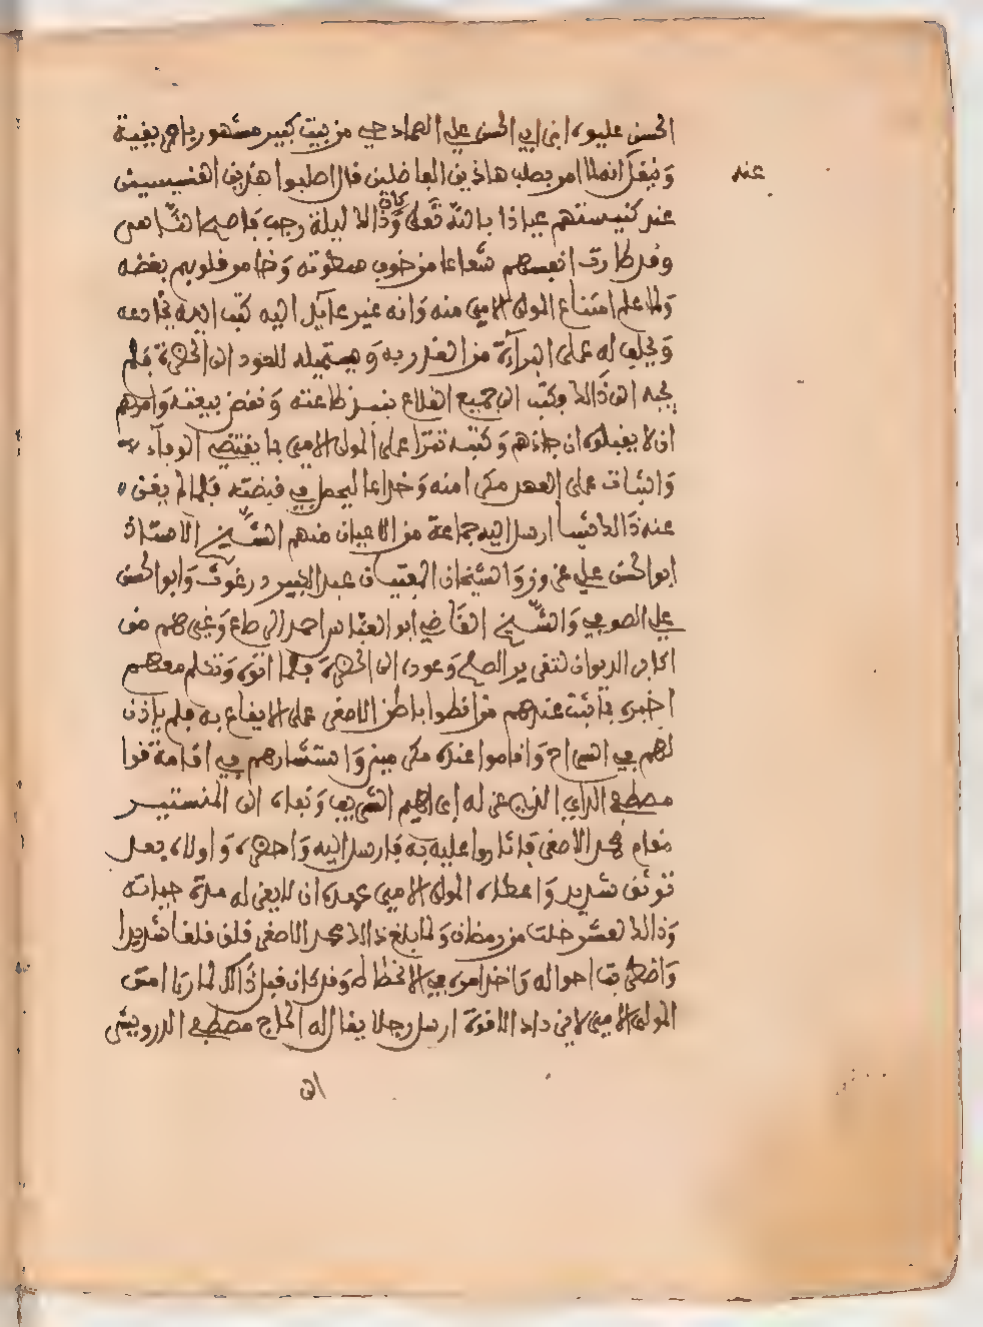 الحسن عليو ابن ابي الحسن علي الصمادحي من بيت كبير مشهور باڢريقية
وَنُقل انه لما امر بطلب هاذين الفاضلين قال اطلبوا هذين القسيسين
عند
عند كنيستهم عياذا بالله تَعلى وَكان ذَالك ليلة رجب فاصبح النَّاس
وقد طارت انفسهم شعاعا من خوف سطوته وَخامر قلوبهم بغضه
وَلما علم امتناع المولى الامير منه وَانه غير مايل اليه كتب اليه يخادعه
وَيحلف له على البرآءة من الغدر به وَيستميله للعود الى الحضرة فلم
يجبه الى ذَالك وكتب الى جميع القلاع بنبذ طاعته وَنقض بيعته وَامرهم
ان لا يقبلوه ان جاءهم وَكتبه تترا على المولى الامير بما يقتضي الوفآء
وَالثبات على العهد مكرا منه وَخداعا ليحصل في قبضته فلما لم يغن
عنه ذَالك شيئا ارسل اليه جماعة من الاعيان منهم الشَّيخ الاستاذ
ابو الحسن علي عزوز وَالشيخان المفتيان عبد الكبير درغوث وَابو الحسن
علي الصوفي وَالشَّيخ القاضي ابو العباس احمد الرصاع وَغيرهم من
اكابر الديوان لتقرير الصلح وَعوده الى الحضرة فلما اتوه وَتكلم معهم
اخبره ثابت عندهم من انطوا باطن الاصغر على الايقاع به فلم ياذن
لهم في السراح وَاقاموا عنده مكرمين وَاستشارهم في اقامة قرا
مصطفى الداي الذي عزله ابراهيم الشريف وَنفاه الى المنستير
مقام محمد الاصغر فاشاروا عليه به فارسل اليه وَاحضره وَاولاه بعد
توثق شديد وَاعطاه المولى الامير عهده ان لا يعزله مدة حياته
وَذَالك لعشر خلت من رمضان وَلما بلغ ذَالك محمد الاصغر قلق قلقا شديدا
وَاضطربت احواله وَاخذ امره في الانحطاط وَقد كان قبل ذَالك لما رءا امتنـ
المولى الامير لابن داد الاقوة ارسل رجلا يقال له الحاج مصطفى الدرويش
الى